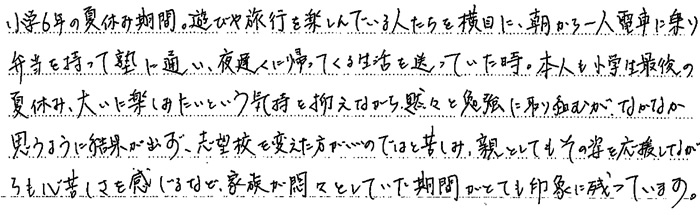 小学6年の夏休み期間。遊びや旅行を楽しんでいる人たちを横目に、朝から一人電車に乗り
弁当を持って塾に通い、夜遅くに帰ってくる生活を送っていた時。本人も小学生最後の
夏休み、大いに楽しみたいという気持を抑えながら、黙々と勉強に取り組むが、なかなか
思うように結果が出ず、志望校を変えた方がいいのではと苦しみ、親としてもその姿を応援しなが
らも心苦しさを感じるなど、家族が悶々としていた期間がとても印象に残っています。